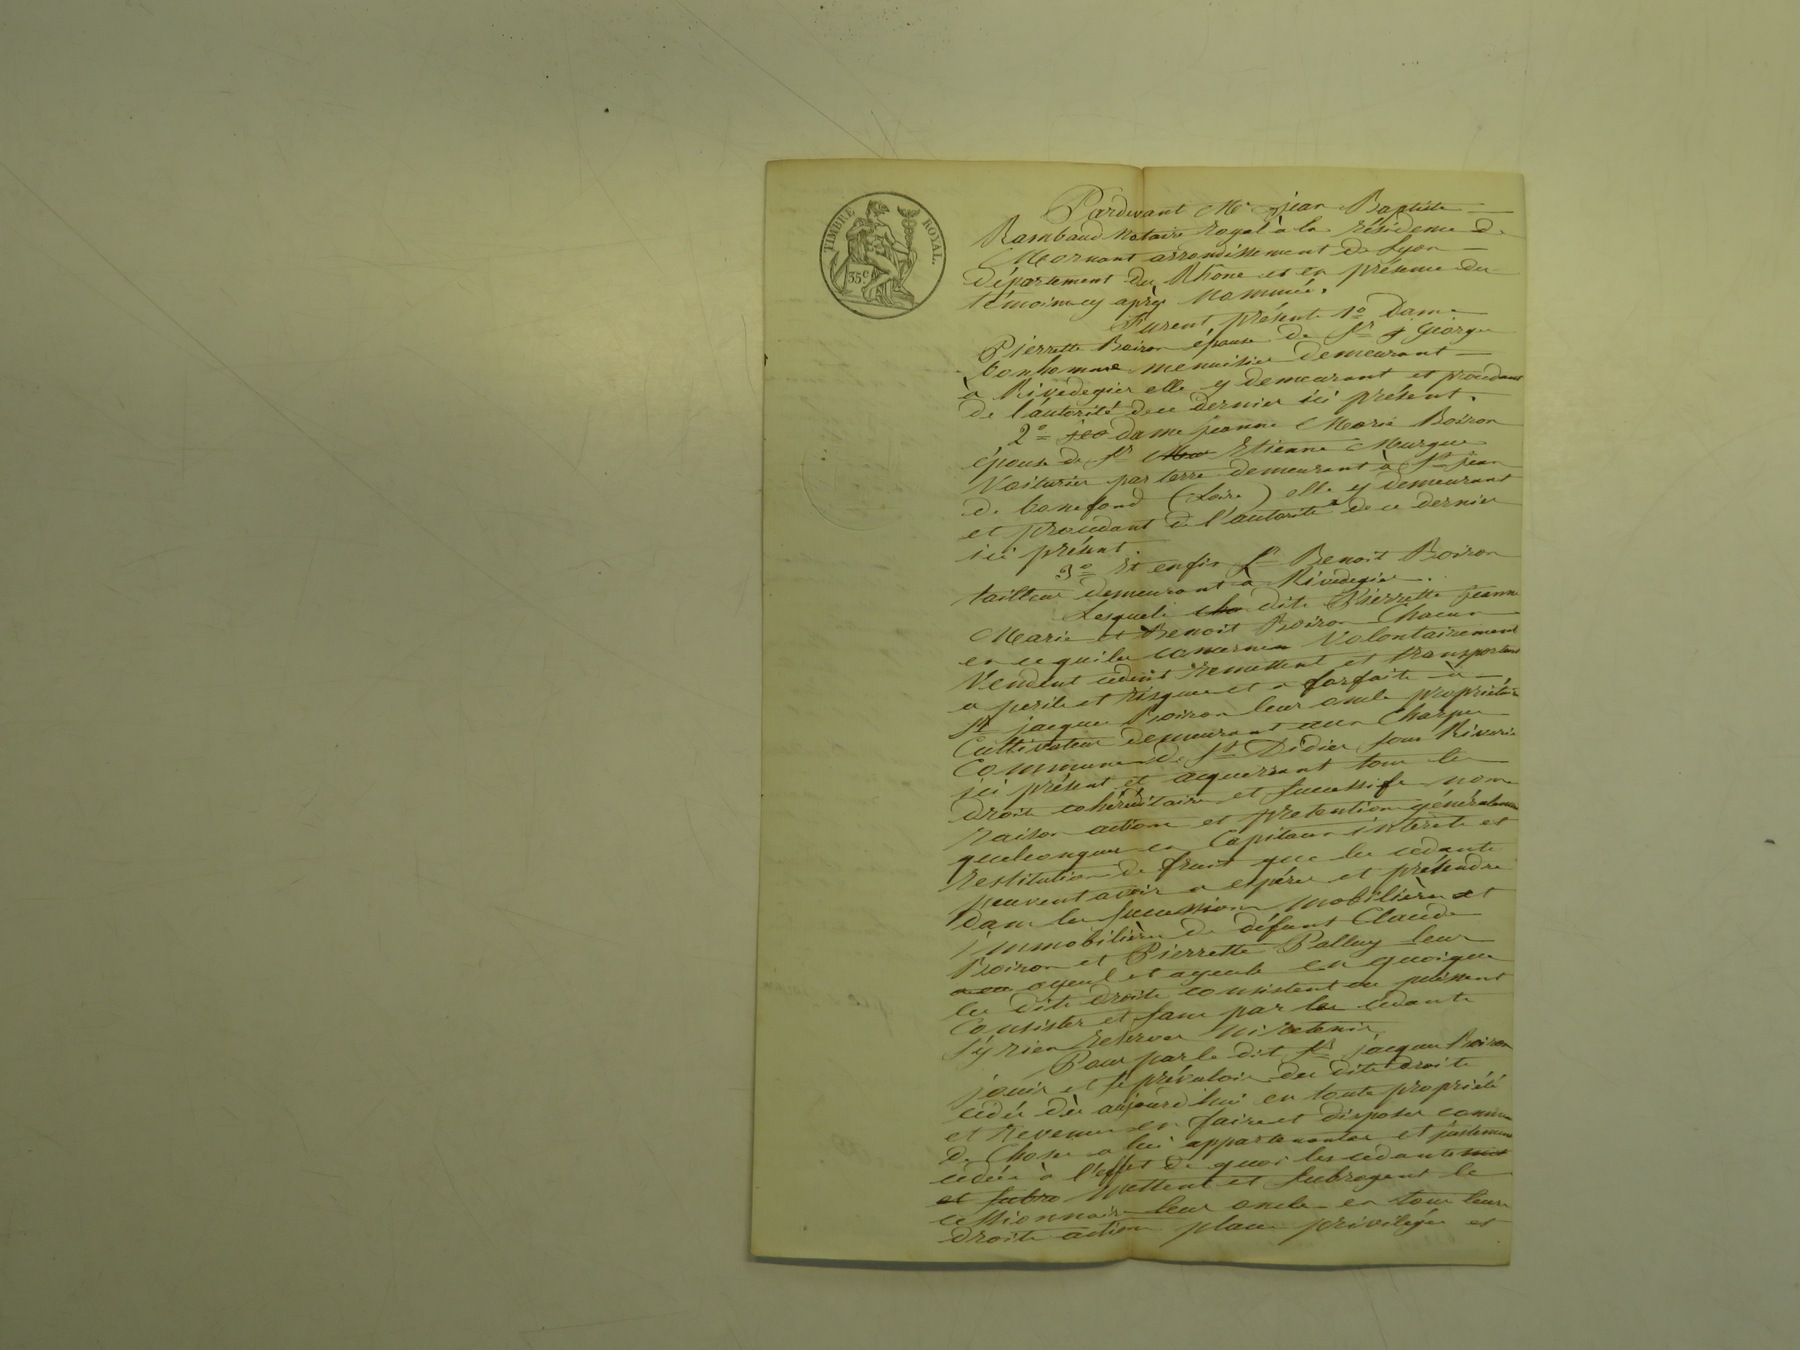 TIMBRE ROYAL.
35c
Pardevant Me jean Baptiste
Rambaud Notaire Royal à la résidence de
Mornant arrondissement de Lyon
département du Rhone et en présence des
témoins cy après Nommés.
Furent présents 1o Dame
Pierrette Boiron épouse de Sr George
bonhomme menuisier demeurant
à Rivedegier elle y demeurant et procédant
de l'autorité de ce dernier ici présent.
2o dame jeanne Marie Boiron
épouse de Sr Etienne Murgues
Voiturier par terre demeurant à St jean
de bonefond (Loire) elle y demeurant
et procédant de l'autorité de ce dernier
ici présent.
3o Et enfin Sr Benoit Boiron
tailleur demeurant à Rivedegier.
Lesquels dits Pierrette jeanne
Marie et Benoit Boiron Chacun
en ce qui les concerne Volontairement
Vendent cèdent remettent et transportent
a perils et risques et a forfaits à
Sr jacques Boiron leur oncle propriétaire
Cultivateur demeurant aux Charpu
Commune de St Didier sous Riverie
ici présent et acquérant tous les
droits cohéréditaires et successifs noms
raison actions et pretentions généralement
quelconques en Capitaux intérêts et
restitution de fruits que les cédants
peuvent avoir a espérer et prétendre
dans les successions mobilières et
immobilières de défunts Claude
Boiron et Pierrette Palluy leur
ayeul et ayeule en quoique
les dits droits consistent ou puissent
Consister et sans par les cédants
s'y rien reserver ni retenir
Pour par le dit Sr jacques Boiron
jouir et se prévaloir des dits droits
cédés dès aujourd'hui en toute propriété
et Revenus en faire et disposer comme
de Choses a lui appartenantes et justement
cédées à l'effet de quoi les cédants
et subro mettent et subrogent le
cessionnaire leur oncle en tous leurs
droits actions places privilèges et